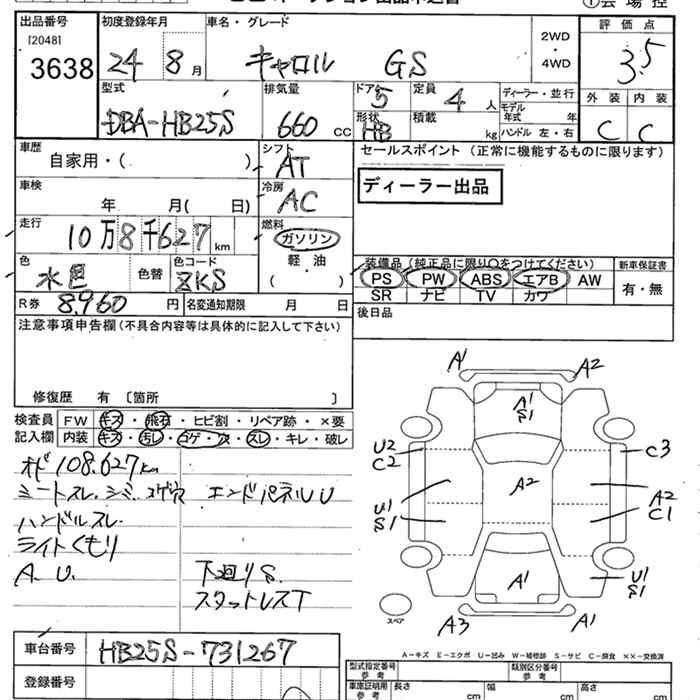 出品番号 初度登録年月 車名・グレード 2WD ・ 4WD 評価点
[2048] 3638 24 8月 キャロル GS 3.5
型式 排気量 ドア 5 定員 4人 ディーラー・並行 外装 内装
DBA-HB25S 660 CC 形状 HB 積載 kg モデル年式 年 ハンドル 左・右 C C
車歴 自家用・( ) シフト AT セールスポイント (正常に機能するものに限ります)
車検 年 月( 日) 冷房 AC ディーラー出品
走行 10万8千627km 燃料 ガソリン
色 水色 色替 色コード ZKS 軽・油 ( )
装備品 (純正品に限り○をつけてください) 新車保証書
PS PW ABS エアB AW 有・無
SR ナビ TV カワ
R券 8,960円 名変通知期限 月 日 後日品
注意事項申告欄(不具合内容等は具体的に記入して下さい)
修復歴 有 〔箇所 〕
検査員 FW キズ・飛石・ヒビ割・リペア跡・×要
記入欄 内装 キズ・汚レ・コゲ・穴・スレ・キレ・破レ
オド108.627km
シートスレ.シミ.コゲ穴 エンドパネルU
ハンドルスレ.
ライトくもり
A. U. 下廻りS.
スタットレスT
A1 A2
A1 S1
U2 C2 C3
A2
U1 S1 A2 C1
A1 U1 S1
スペア A3 A1
A-キズ E-エクボ U-凹み W-補修跡 S-サビ C-腐食 ××-交換済
車台番号 HB25S-731267
登録番号
型式指定番号 参考 類別区分番号 参考
車庫証明用 参考 長さ cm 幅 cm 高さ cm